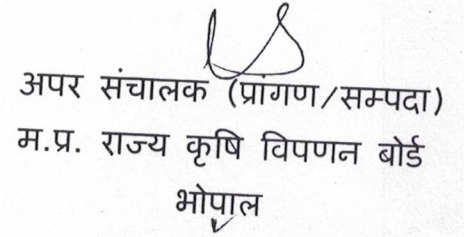 अपर संचालक (प्रांगण/सम्पदा)
म.प्र. राज्य कृषि विपणन बोर्ड
भोपाल